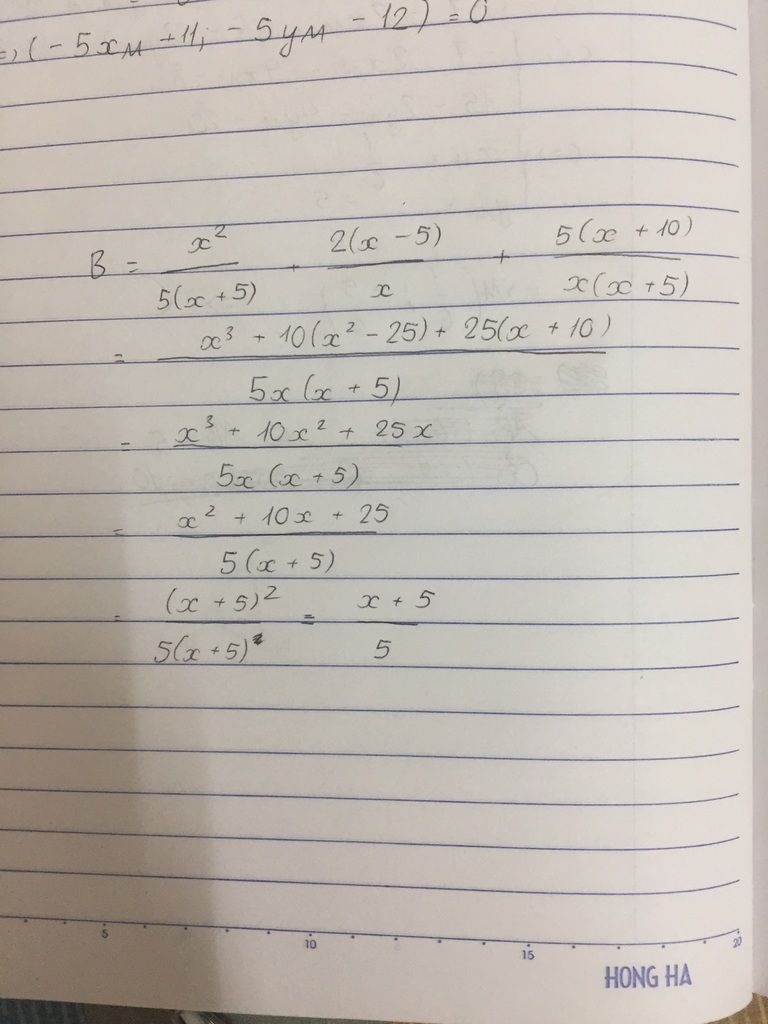 => (-5xM + 11; -5yM - 12) = 0
B = x²/5(x+5) + 2(x-5)/x + 5(x+10)/x(x+5)
= x³ + 10(x² - 25) + 25(x + 10)/5x(x + 5)
= x³ + 10x² + 25x/5x(x + 5)
= x² + 10x + 25/5(x + 5)
= (x + 5)²/5(x + 5) = x + 5/5
5 10 15 20
HONG HA